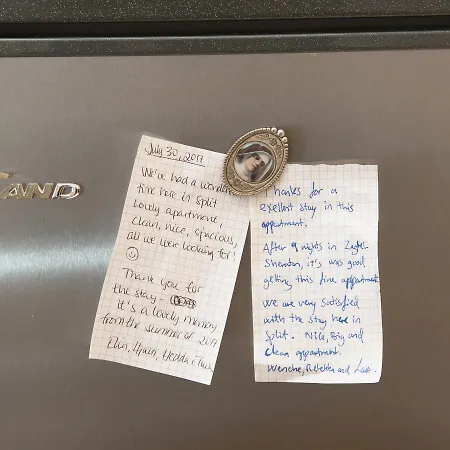 AND
July 30, 2017
We've had a wonder
time here in Split
Lovely apartment,
clean, nice, spacious,
all we were looking for!
Thank you for
the stay -
it's a lovely memory
from the summer of 2017
Elin, Hedda
Thanks for a
exellent stay in this
appartment.
After 9 nights in
Sheraton, it's was good
getting this fine appartment
We are very satisfied
with the stay here in
Split. Nice, Big and
Clean appartment.
Wenche, Rebekka and